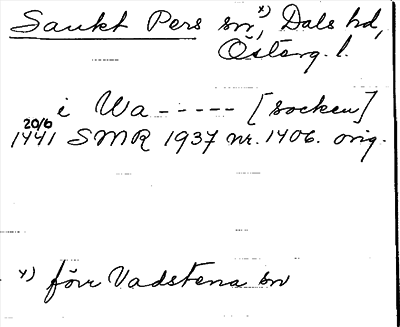 Sankt Pers sn, x) Dals hd,
Österg. l.
i Wa - - - - - [socken]
20/6
1441 SMR 1937 nr. 1406. orig.
x) förr Vadstena sn